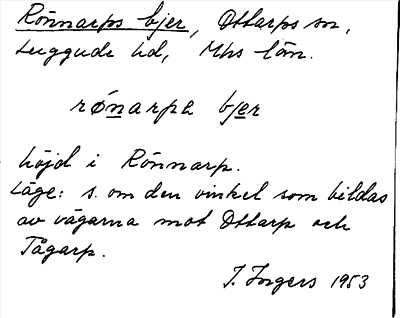 Rönnarps bjer, Ottarps sn,
Luggude hd, Mhs län.
rǿnarps bjer
höjd i Rönnarp.
Läge: s. om den vinkel som bildas
av vägarna mot Ottarp och
Tågarp.
I. Ingers 1953